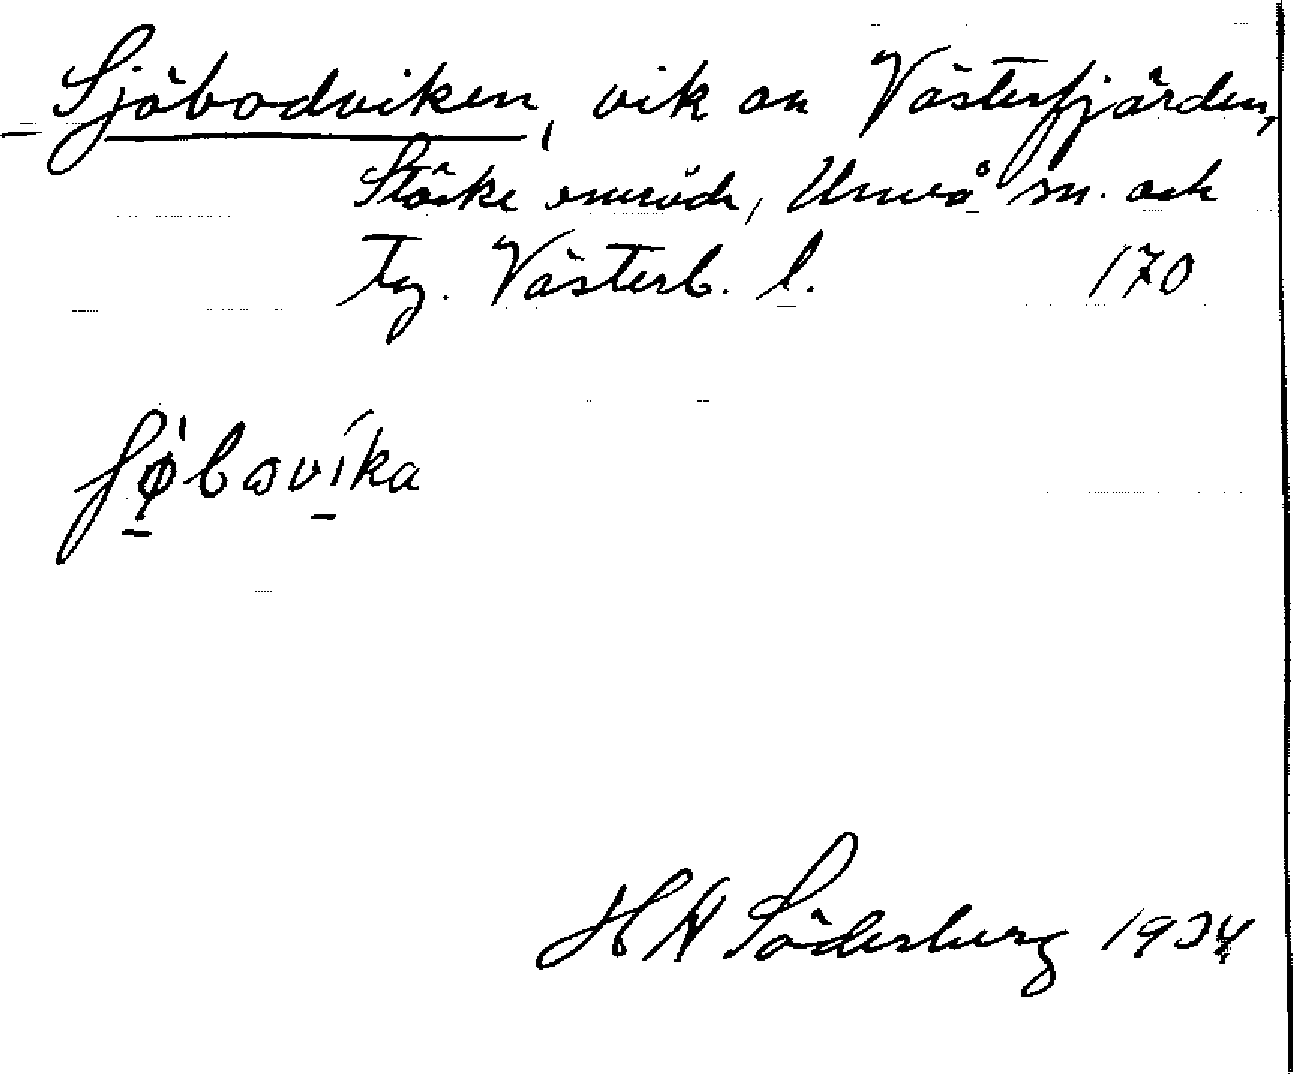 Sjöbodviken, vik av Västerfjärden,
Stöcke område, Umeå sn. och
tg. Västerb. l. 170
H A Söderberg 1934